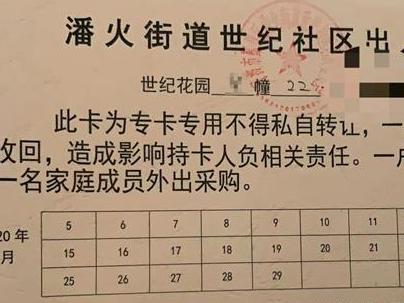 潘火街道世纪社区出
世纪花园 4 幢 22
此卡为专卡专用不得私自转让，一
收回，造成影响持卡人负相关责任。一户
一名家庭成员外出采购。
5 6 7 8 9 10 11
20年 15 16 17 18 19 20 21
月 25 26 27 28 29